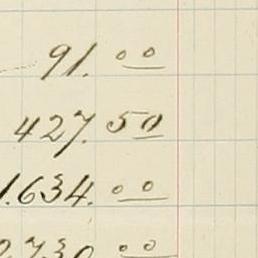 91.00
427.50
1.634.00
2.730.00